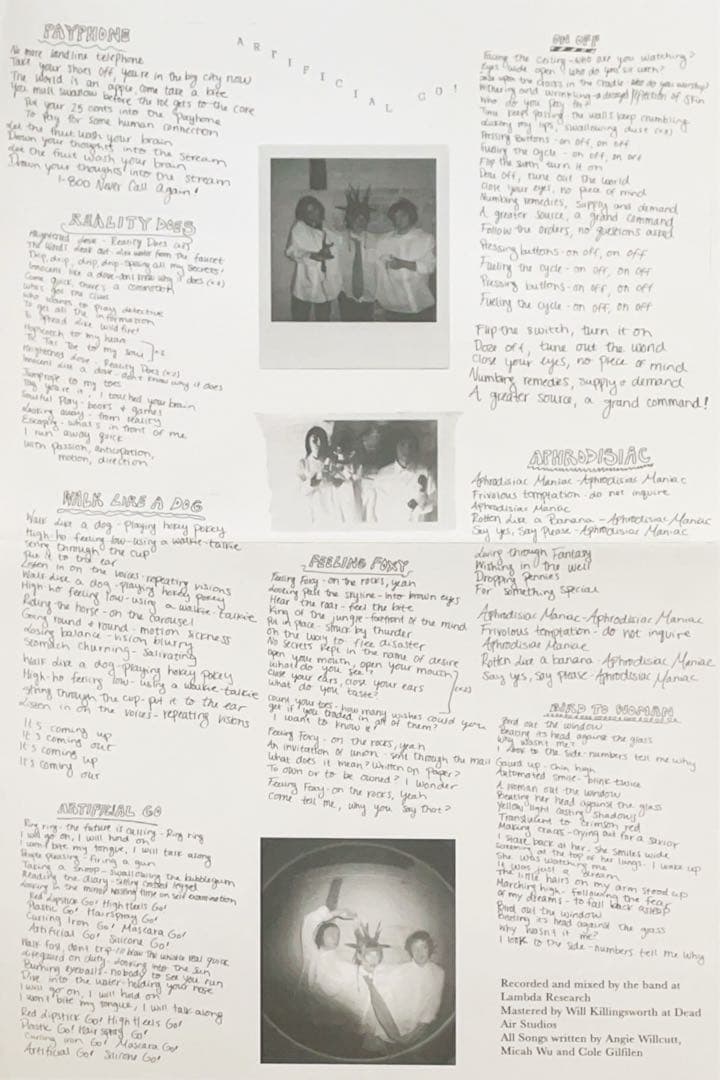 ARTIFICIAL GO!
PAYPHONE
No more landline telephone
Take your shoes off, you're in the big city now
The world is an apple, come take a bite
You must swallow before the rot gets to the core
Put your 25 cents into the Payphone
To pay for some human connection
Let the fruit wash your brain
Drown your thoughts into the stream
Let the fruit wash your brain
Drown your thoughts into the stream
1-800 Never Call Again!
REALITY DOES
Heightened dose - Reality Does air
The words leak out - like water from the faucet
Drip, drip, drip, drip - spilling all my secrets!
Innocent like a dove - don't know why it does (x2)
Come quick, there's a connection
Who's got the clue
Who wants to play detective
To get all the information
To spread like wildfire!
Hopscotch to my heart
Tic Tac Toe to my soul
x2
Heightened dose - Reality Does (x2)
Innocent like a dove - don't know why it does
Jumprope to my toes
Tag you're it, I touched your brain
Soulful Play - books & games
Looking away - from reality
Escaping - what's in front of me
I run away quick
with passion, anticipation,
motion, direction
WALK LIKE A DOG
Walk like a dog - playing hokey pokey
High-ho feeling low - using a walkie-talkie
String through the cup
Put it to the ear
Listen in on the voices - repeating visions
Walk like a dog - playing hokey pokey
High ho feeling low - using a walkie-talkie
Riding the horse - on the carousel
Going round & round - motion sickness
Losing balance - vision blurry
Stomach churning - salivating
Walk like a dog - playing hokey pokey
High-ho feeling low - using a walkie-talkie
String through the cup - put it to the ear
Listen in on the voices - repeating visions
It's coming up
It's coming out
It's coming up
It's coming out
ARTIFICIAL GO
Ring ring - the future is calling - Ring ring
I will go on, I will hold on
I won't bite my tongue, I will talk along
People pleasing - Firing a gun
Taking a snoop - swallowing the bubblegum
Reading the diary - sitting crossed legged
Looking in the mirror wasting time on self examination
Red Lipstick Go! High Heels Go!
Plastic Go! Hairspray Go!
Curling Iron Go! Mascara Go!
Artificial Go! Silicone Go!
Walk fast, don't trip - to the real quick
Lifeguard on duty - Looking into the sun
Burning eyeballs - nobody to see you run
Dive into the water - holding your nose
I will go on, I will hold on
I won't bite my tongue, I will talk along
Red Lipstick Go! High Heels Go!
Plastic Go! Hair Spray Go!
Curling Iron Go! Mascara Go!
Artificial Go! Silicone Go!
FEELING FOXY
Feeling Foxy - on the rocks, yeah
Looking past the skyline - into brown eyes
Hear the roar - feel the bite
King of the jungle - forefront of the mind
Put in place - struck by thunder
On the way to - flee disaster
No secrets kept in the name of desire
Open your mouth, open your mouth
What do you see?
Close your ears, close your ears
What do you taste?
(x2)
Count your toes - how many wishes could you
get if you traded in all of them?
I want to know it
Feeling Foxy - on the rocks, yeah
An invitation of union - sent through the mail
What does it mean? Written on paper?
To own or to be owned? I wonder
Feeling Foxy - on the rocks, yeah
Come tell me, why you say that?
ON OFF
Facing the ceiling - who are you watching?
Eyes wide open - who do you sit with?
Gaze upon the cracks in the cradle - who do you worship?
Withering and wrinkling - a decayed reflection of skin
Who do you pay for?
Time keeps passing - the walls keep crumbling
Licking my lips, swallowing dust (x2)
Pressing buttons - on off, on off
Fueling the cycle - on off, on off
Flip the switch turn it on
Doze off, tune out the world
Close your eyes, no piece of mind
Numbing remedies, supply and demand
A greater source, a grand command
Follow the orders, no questions asked
Pressing buttons - on off, on off
Fueling the cycle - on off, on off
Pressing buttons - on off, on off
Fueling the cycle - on off, on off
Flip the switch, turn it on
Doze off, tune out the world
Close your eyes, no piece of mind
Numbing remedies, supply & demand
A greater source, a grand command!
APHRODISIAC
Aphrodisiac Maniac - Aphrodisiac Maniac
Frivolous temptation - do not inquire
Aphrodisiac Maniac
Rotten like a Banana - Aphrodisiac Maniac
Say Yes, Say Please - Aphrodisiac Maniac
Living through Fantasy
Wishing in the well
Dropping Pennies
For something special
Aphrodisiac Maniac - Aphrodisiac Maniac
Frivolous temptation - do not inquire
Aphrodisiac Maniac
Rotten like a banana - Aphrodisiac Maniac
Say yes, Say please - Aphrodisiac Maniac
BIRD TO WOMAN
Bird out the window
Beating its head against the glass
Why wasn't me?
I look to the side - numbers tell me why
Gaurd up - Chin high
Automated smile - blink twice
A woman out the window
Beating her head against the glass
Yellow light casting shadows
Translucent to crimson red
Making cracks - crying out for a savior
I stare back at her - she smiles wide
Screaming at the top of her lungs - I wake up
She was watching me
It was just a dream
The little hairs on my arm stood up
Marching high - following the fear
of my dreams - to fall back asleep
Bird out the window
Beating its head against the glass
Why wasn't it me?
I look to the side - numbers tell me why
Recorded and mixed by the band at
Lambda Research
Mastered by Will Killingsworth at Dead
Air Studios
All Songs written by Angie Willcutt,
Micah Wu and Cole Gilfilen